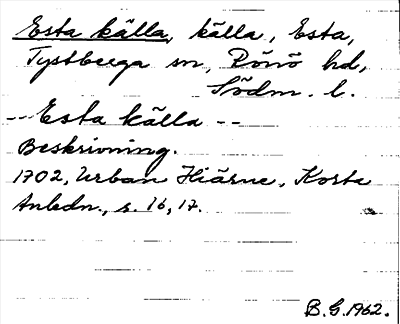 Esta källa, källa, Esta,
Tystberga sn, Rönö hd,
Södm. l.
-- Esta källa --
Beskrivning.
1702, Urban Hiärne, Korta
Anledn., s. 16, 17.
B.G. 1962.